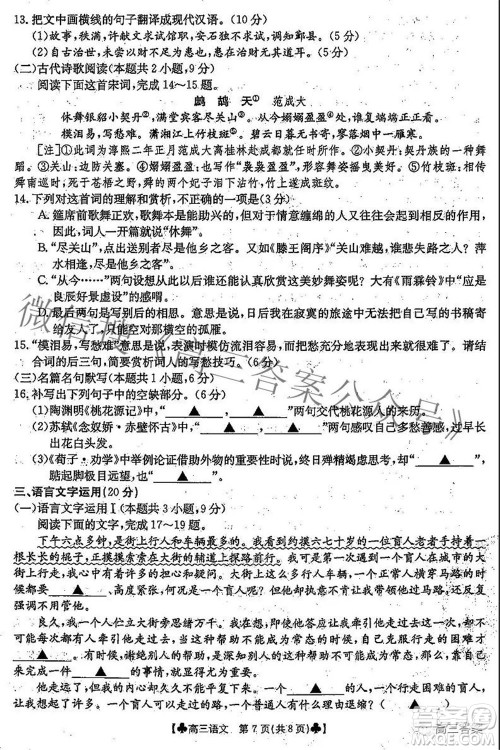 13.把文中画横线的句子翻译成现代汉语。(10分)
(1)故事,秩满,许献计大臣求试,词知鄞县。(5分)
(二)古代诗歌阅读(本题共2小题,9分)
阅读下面这首宋词,完成14~15题。
鹧鸪天① 范成大
休舞银貂小契丹②,满堂宾客尽关山③。从今嫋嫋盈盈④处,谁复端端正正看。
模泪易,写愁难。潇湘江上竹枝斑⑤。碧云日暮无书寄,寥落烟中一雁寒。
[注]①此词为淳熙二年正月范成大离桂林赴成都就任时所作。②小契丹:契丹族的一种舞
蹈。③关山:关隘山岭。④嫋嫋盈盈:也写作“袅袅盈盈”,形容舞姿摇曳美好。⑤竹枝斑:传
舜南巡时,死于苍梧之野,舜的两个妃子泪下沾竹,竹上生斑。
14.下列对这首词的理解和赏析,不正确的一项是(3分)
A.筵席前歌舞正欢,歌舞本是能助兴的,但对于情意缠绵的人又往往因此引发对别离的感
叹,因此,词人一开篇写道“休舞”。
B.“尽关山”,点到尽是他乡之客。又如《滕王阁序》“关山难越,谁悲失路之人?萍
水相逢,尽是他乡之客”。
C.“从今……”两句设想此后无人欣赏这美妙舞姿了,有柳永《雨霖铃》“应是良辰
好景虚设”的感觉。
D.“碧云……”两句描绘了日暮碧云图,最后以景结尾,表达了词人要把自己的书稿寄
情于那横碧空的孤雁。
15.“模泪易,写愁难”意思是说,表演时模仿流泪很容易,但要抒写内心的愁怨却非常难。请结
合词的后三句,简要赏析词人的写愁技巧。(6分)
(三)名篇名句默写(本题共1小题,6分)
16.补写出下列句子中的空缺部分。(6分)
(1)陶渊明《桃花源记》中,“▲,▲”两句交代桃花源人的来历。
(2)苏轼《念奴娇·赤壁怀古》中,“▲,▲”两句感叹自己多愁善感,过早
地长出花白头发。
(3)《荀子·劝学》中举例论证借助外物的重要性时说,“▲”与“▲”,
踮起脚极目远望,也“▲”。
三、语言文字运用(20分)
(一)语言文字运用Ⅰ(本题共3小题,9分)
阅读下面的文字,完成17~19题。
下午六点多钟,是街上行人和车辆最多的。我看到约摸六七十岁的一盲人老者手持着一
根长长的棍子,正摸摸索索在大街的辅道上探路前行。我可是第一次看到盲人在城市的大
街上行走,我心中有着无比的担忧。大街上好多行人和车辆,一个正常人横穿马路的时
候都要▲、高度紧张,何况一个盲人!我没有勇气牵引他走过去,我在心里始终不能原
谅自己的懦弱。
良久,我一个人伫立大街旁思绪万千。我想很多次都有人牵引他走过大街,但总有一次
可能没有任何人牵引他走过大街。因为每次都有人牵引他不能成为常态,自己克服行走困难才
可能成为▲。他就是在这种常态下把不可能变成可能,把这种在常人看来▲的事情
看来完成一件▲的事情,就显示出他的坚强和耐力。
他走远了,我还在凝望着他。一个盲人走过的路,一个普通人有可能无法走过;一个盲
人可以走得很远很远,一个普通人有
高三语文 第7页(共8页)
高三答案
微信搜《高三答案公众号》